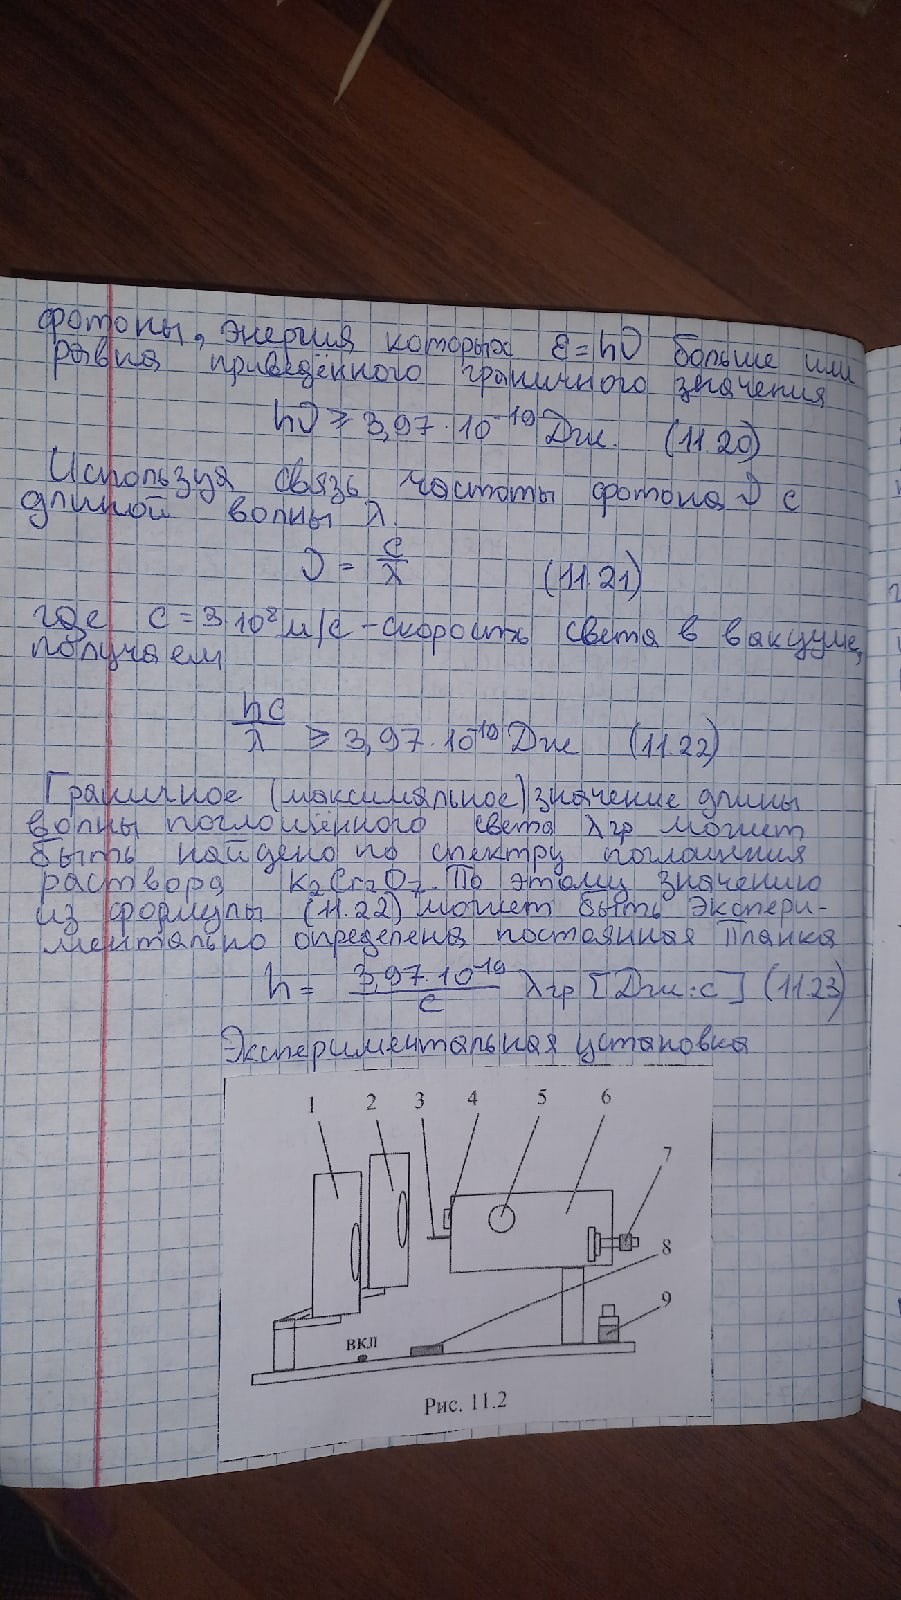 фотоны, энергия которых ε = hν больше или
равна приведённого граничного значения
hν ≥ 3,97 · 10⁻¹⁹ Дж. (11.20)
Используя связь частоты фотона ν с
длиной волны λ.
ν = c/λ (11.21)
где c = 3 10⁸ м/с - скорость света в вакууме,
получаем
hc/λ ≥ 3,97 · 10⁻¹⁹ Дж (11.22)
Граничное (максимальное) значение длины
волны поглощённого света λгр может
быть найдено по спектру поглощения
раствора K₂Cr₂O₇. По этому значению
из формулы (11.22) может быть экспери-
ментально определена постоянная Планка
h = 3,97 · 10⁻¹⁹/c λгр [Дж·с] (11.23)
Экспериментальная установка
1 2 3 4 5 6
7
8
9
ВКЛ
Рис. 11.2